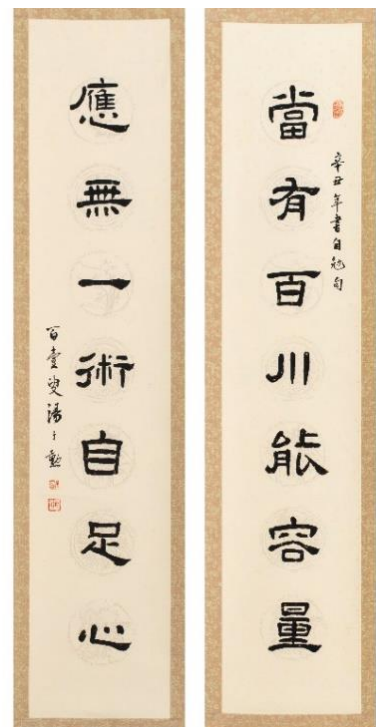 當有百川能容量
辛丑年書自勉句
應無一術自足心
百壹叟湯子勳